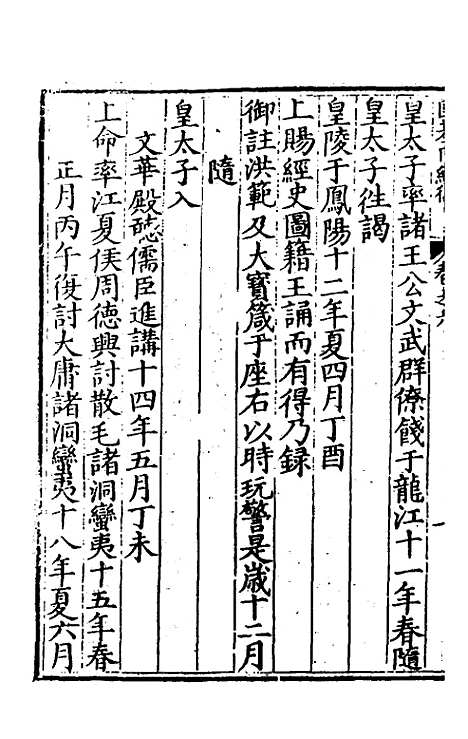 皇太子率諸王公文武群僚餞于龍江十一年春隨
皇太子徃謁
皇陵于鳳陽十二年夏四月丁酉
上賜經史圖籍王誦而有得乃録
御註洪範及大寳箴于座右以時玩警是嵗十二月
隨
皇太子入
文華殿聽儒臣進講十四年五月丁未
上命率江夏侯周德興討散毛諸洞蠻夷十五年春
正月丙午復討大庸諸洞蠻夷十八年夏六月